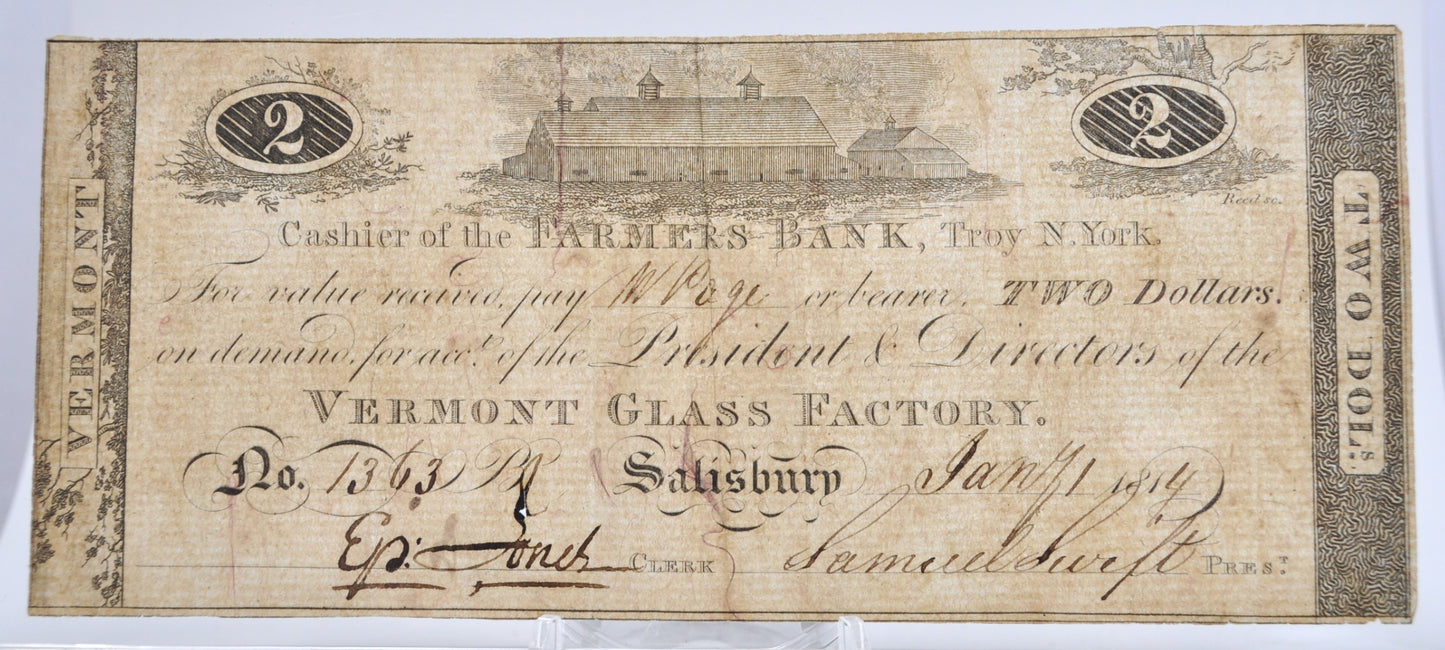 2
2
Reed sc.
VERMONT
TWO DOLS.
Cashier of the FARMERS BANK, Troy N. York.
For value received, pay W Page or bearer, TWO Dollars.
on demand, for acct. of the President & Directors of the
VERMONT GLASS FACTORY.
No. 1363 Salisbury Jany 1 1814
Ep: Jones CLERK Samuel Swift PREST.